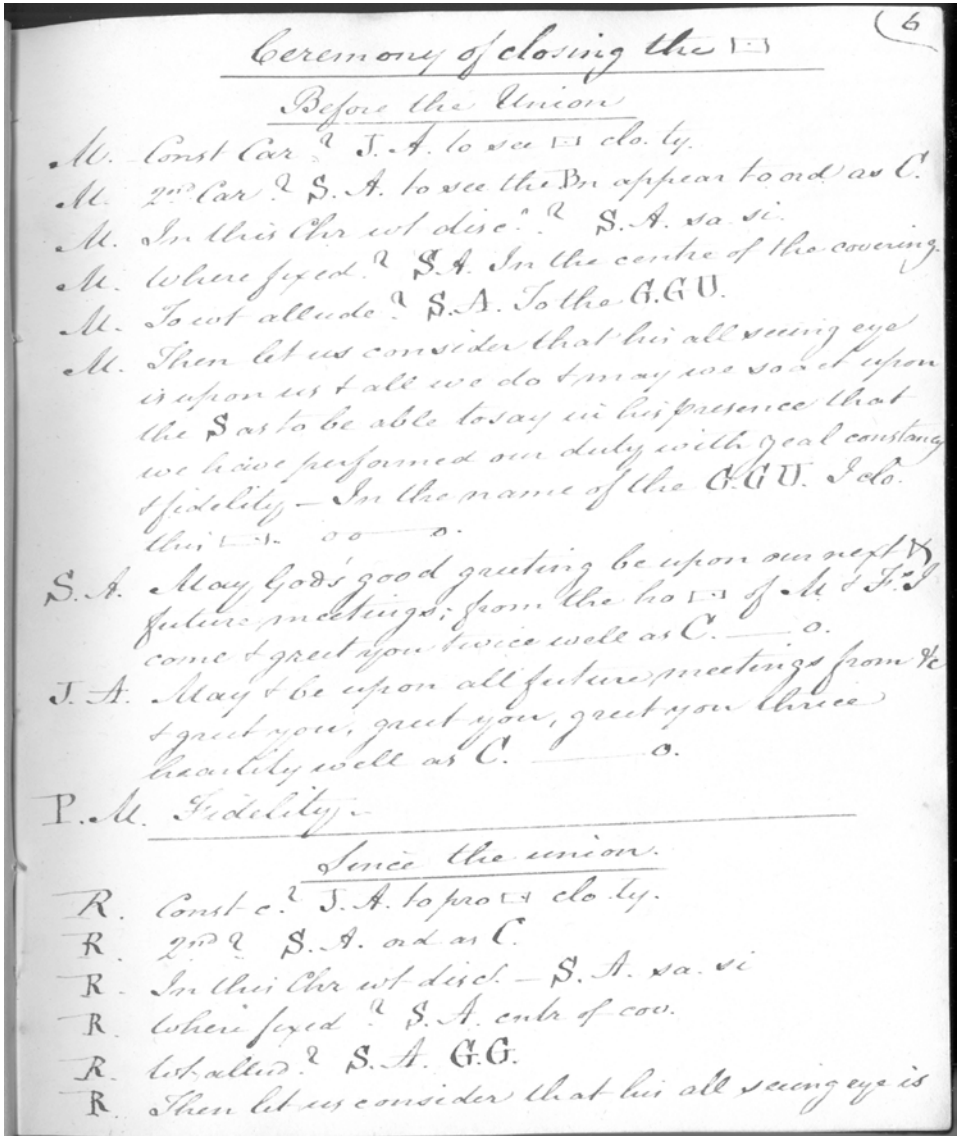 6
Ceremony of closing the
Before the Union
M. Const Car? J. A. to see clo. ty.
M. 2nd Car? S. A. to see the Bn appear to ord as C.
M. In this Chr wt disc.? S. A. sa. si.
M. Where fixed? S. A. In the centre of the covering.
M. To wt allude? S. A. To the G. G U.
M. Then let us consider that his all seeing eye
is upon us & all we do & may we so act upon
the S as to be able to say in his presence that
we have performed our duty with zeal constancy
& fidelity – In the name of the G. G U. I clo.
this . o o — o.
S. A. May God's good greeting be upon our next &
future meetings; from the ho of M & F. I
come & greet you twice well as C. — o.
J. A. May & be upon all future meetings from &c
& greet you, greet you, greet you thrice
heartily well as C. — o.
P. M. Fidelity –
Since the union.
R. Const c.? J. A. to pro clo. ty.
R. 2nd? S. A. ord as C.
R. In this Chr wt disc. – S. A. sa. si
R. Where fixed? S. A. cntr of cov.
R. Wt allud.? S. A. G. G.
R. Then let us consider that his all seeing eye is